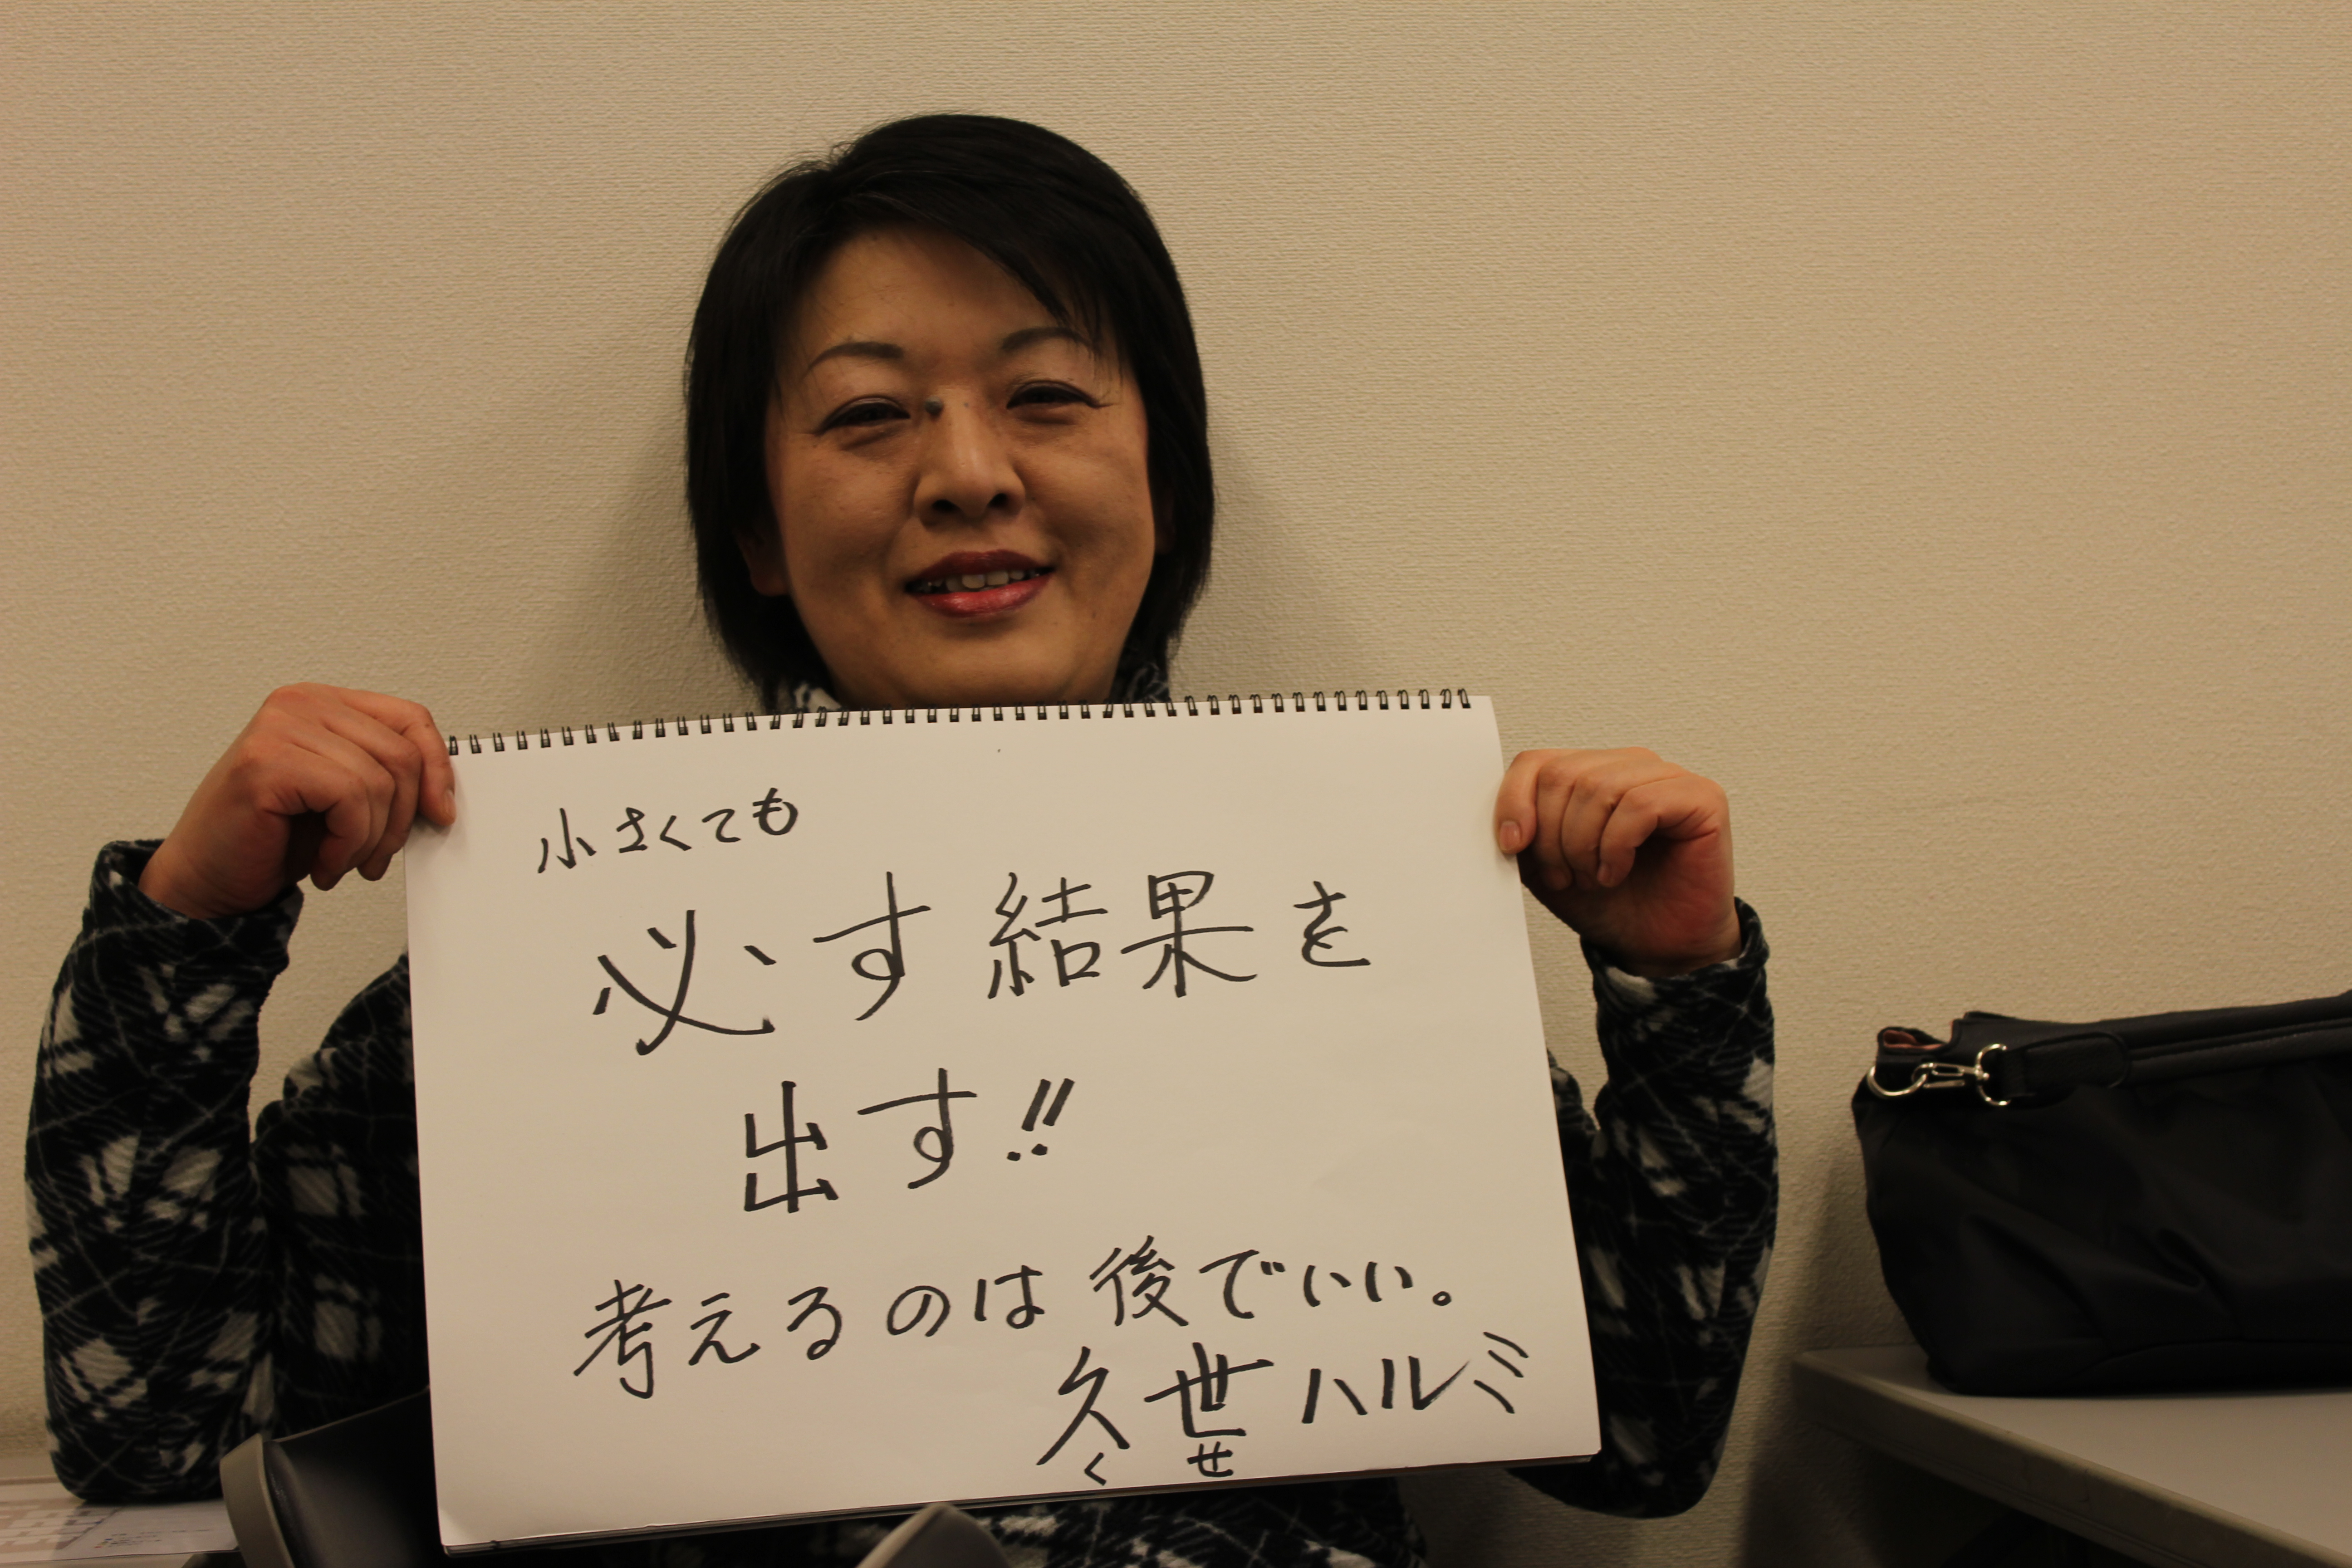 小さくても
必す結果を
出す!!
考えるのは後でいい。
久世ハルミ
くせ